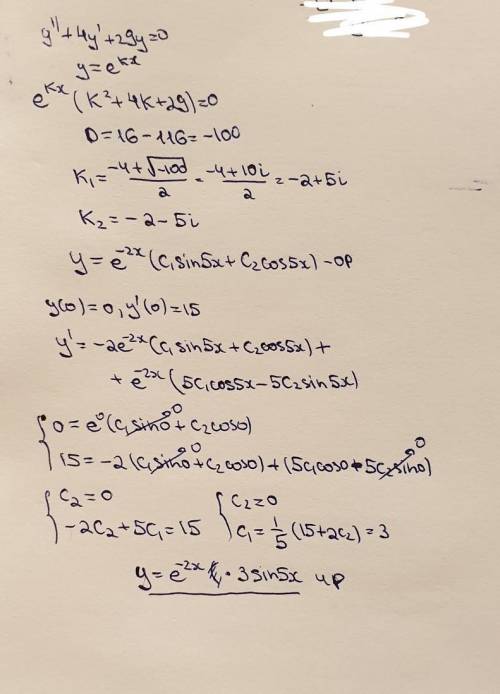 y''+4y'+29y=0
y=e^{kx}
e^{kx}(k²+4k+29)=0
D=16-116=-100
k₁=(-4+√-100)/2=(-4+10i)/2=-2+5i
k₂=-2-5i
y=e^{-2x}(C₁sin5x+C₂cos5x)-ор
y(0)=0, y'(0)=15
y'=-2e^{-2x}(C₁sin5x+C₂cos5x)+
+e^{-2x}(5C₁cos5x-5C₂sin5x)
{ 0=e⁰(C₁sin0+C₂cos0)
15=-2(C₁sin0+C₂cos0)+(5C₁cos0-5C₂sin0)
{ C₂=0 { C₂=0
-2C₂+5C₁=15 C₁=1/5(15+2C₂)=3
y=e^{-2x}·3sin5x чр